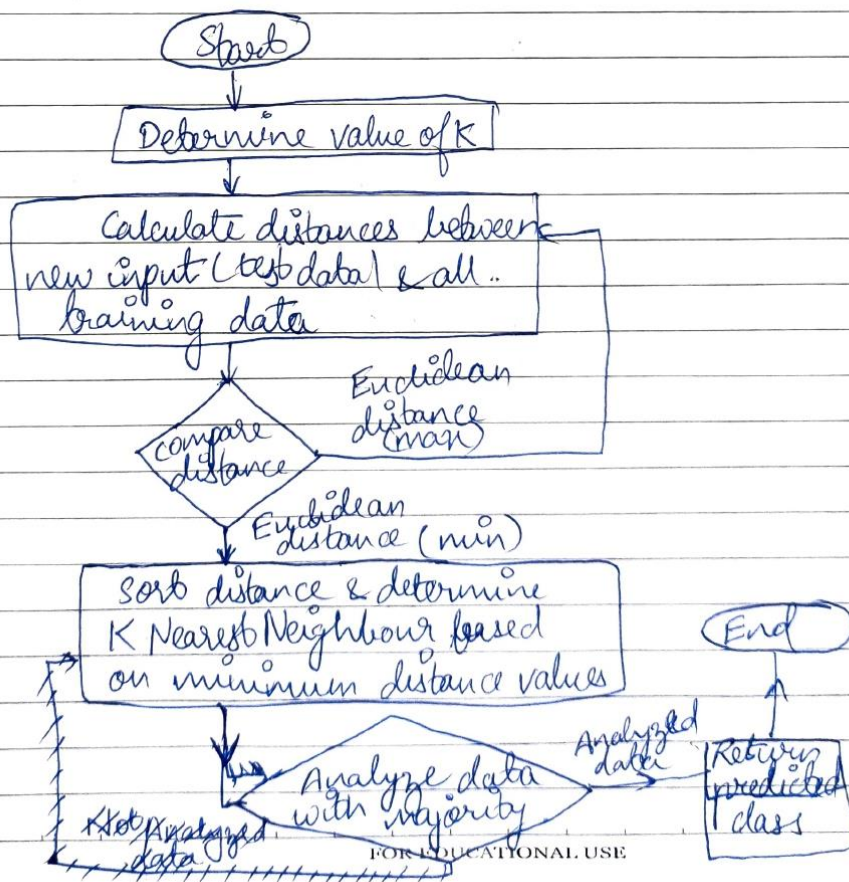 Start
Determine value of K
Calculate distances between
new input (test data) & all..
training data
Euclidean
distance
(max)
compare
distance
Euclidean
distance (min)
Sort distance & determine
K Nearest Neighbour based
on minimum distance values
End
Analyze data
with majority
Analyzed
data
Return
predicted
class
Not Analyzed
data
FOR EDUCATIONAL USE